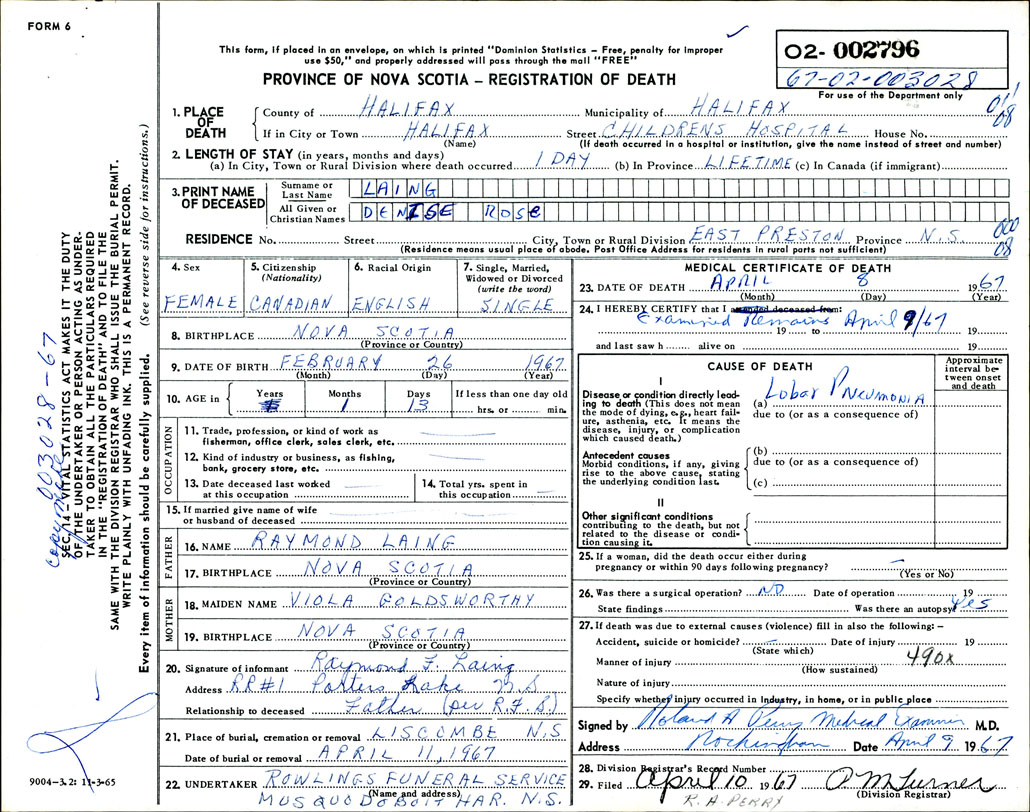 FORM 6
This form, if placed in an envelope, on which is printed "Dominion Statistics – Free, penalty for improper
use $50," and properly addressed will pass through the mail "FREE"
PROVINCE OF NOVA SCOTIA – REGISTRATION OF DEATH
O2- 002796
67-02-003028
For use of the Department only
011
08
1. PLACE OF DEATH
County of HALIFAX Municipality of HALIFAX
If in City or Town HALIFAX Street CHILDRENS HOSPITAL House No.
(Name) (If death occurred in a hospital or institution, give the name instead of street and number)
2. LENGTH OF STAY (in years, months and days)
(a) In City, Town or Rural Division where death occurred 1 DAY (b) In Province LIFETIME (c) In Canada (if immigrant)
3. PRINT NAME OF DECEASED
Surname or Last Name LAING
All Given or Christian Names DENISE ROSE
RESIDENCE No. Street City, Town or Rural Division EAST PRESTON Province N.S.
(Residence means usual place of abode. Post Office Address for residents in rural parts not sufficient)
000
08
4. Sex
FEMALE
5. Citizenship
(Nationality)
CANADIAN
6. Racial Origin
ENGLISH
7. Single, Married,
Widowed or Divorced
(write the word)
SINGLE
8. BIRTHPLACE NOVA SCOTIA
(Province or Country)
9. DATE OF BIRTH FEBRUARY 26 1967
(Month) (Day) (Year)
10. AGE in Years Months Days If less than one day old
1 13 hrs. or min.
OCCUPATION
11. Trade, profession, or kind of work as
fisherman, office clerk, sales clerk, etc.
12. Kind of industry or business, as fishing,
bank, grocery store, etc.
13. Date deceased last worked
at this occupation
14. Total yrs. spent in
this occupation
15. If married give name of wife
or husband of deceased
FATHER
16. NAME RAYMOND LAING
17. BIRTHPLACE NOVA SCOTIA
(Province or Country)
MOTHER
18. MAIDEN NAME VIOLA GOLDSWORTHY
19. BIRTHPLACE NOVA SCOTIA
(Province or Country)
20. Signature of informant Raymond F. Laing
Address RR#1 Porters Lake N.S
Relationship to deceased Father (per R.F.S.)
21. Place of burial, cremation or removal LISCOMBE N.S
Date of burial or removal APRIL 11, 1967
22. UNDERTAKER ROWLINGS FUNERAL SERVICE
(Name and address)
MUSQUODOBOIT HAR. N.S.
MEDICAL CERTIFICATE OF DEATH
23. DATE OF DEATH APRIL 8 1967
(Month) (Day) (Year)
24. I HEREBY CERTIFY that I attended deceased from:
Examined Remains April 9/67
19 to 19
and last saw h alive on 19
CAUSE OF DEATH
Approximate
interval be-
tween onset
and death
I
Disease or condition directly lead-
ing to death (This does not mean
the mode of dying, e.g., heart fail-
ure, asthenia, etc. It means the
disease, injury, or complication
which caused death.)
(a) Lobar Pneumonia
due to (or as a consequence of)
Antecedent causes
Morbid conditions, if any, giving
rise to the above cause, stating
the underlying condition last.
(b)
due to (or as a consequence of)
(c)
II
Other significant conditions
contributing to the death, but not
related to the disease or condi-
tion causing it.
25. If a woman, did the death occur either during
pregnancy or within 90 days following pregnancy?
(Yes or No)
26. Was there a surgical operation? NO Date of operation 19
State findings Was there an autopsy? Yes
27. If death was due to external causes (violence) fill in also the following: –
Accident, suicide or homicide? Date of injury 19
(State which)
Manner of injury 490X
(How sustained)
Nature of injury
Specify whether injury occurred in Industry, in home, or in public place
Signed by Roland A Perry Medical Examiner M.D.
Address Rockingham Date April 9 1967
28. Division Registrar's Record Number
29. Filed April 10 1967 P M Turner
(Division Registrar)
R. A. PERRY
copy made 003028-67
SEC. 14 – VITAL STATISTICS ACT MAKES IT THE DUTY
OF THE UNDERTAKER OR PERSON ACTING AS UNDER-
TAKER TO OBTAIN ALL THE PARTICULARS REQUIRED
IN THE "REGISTRATION OF DEATH" AND TO FILE THE
SAME WITH THE DIVISION REGISTRAR WHO SHALL ISSUE THE BURIAL PERMIT.
WRITE PLAINLY WITH UNFADING INK. THIS IS A PERMANENT RECORD.
Every item of information should be carefully supplied. (See reverse side for instructions.)
9004-3.2: 11-3-65